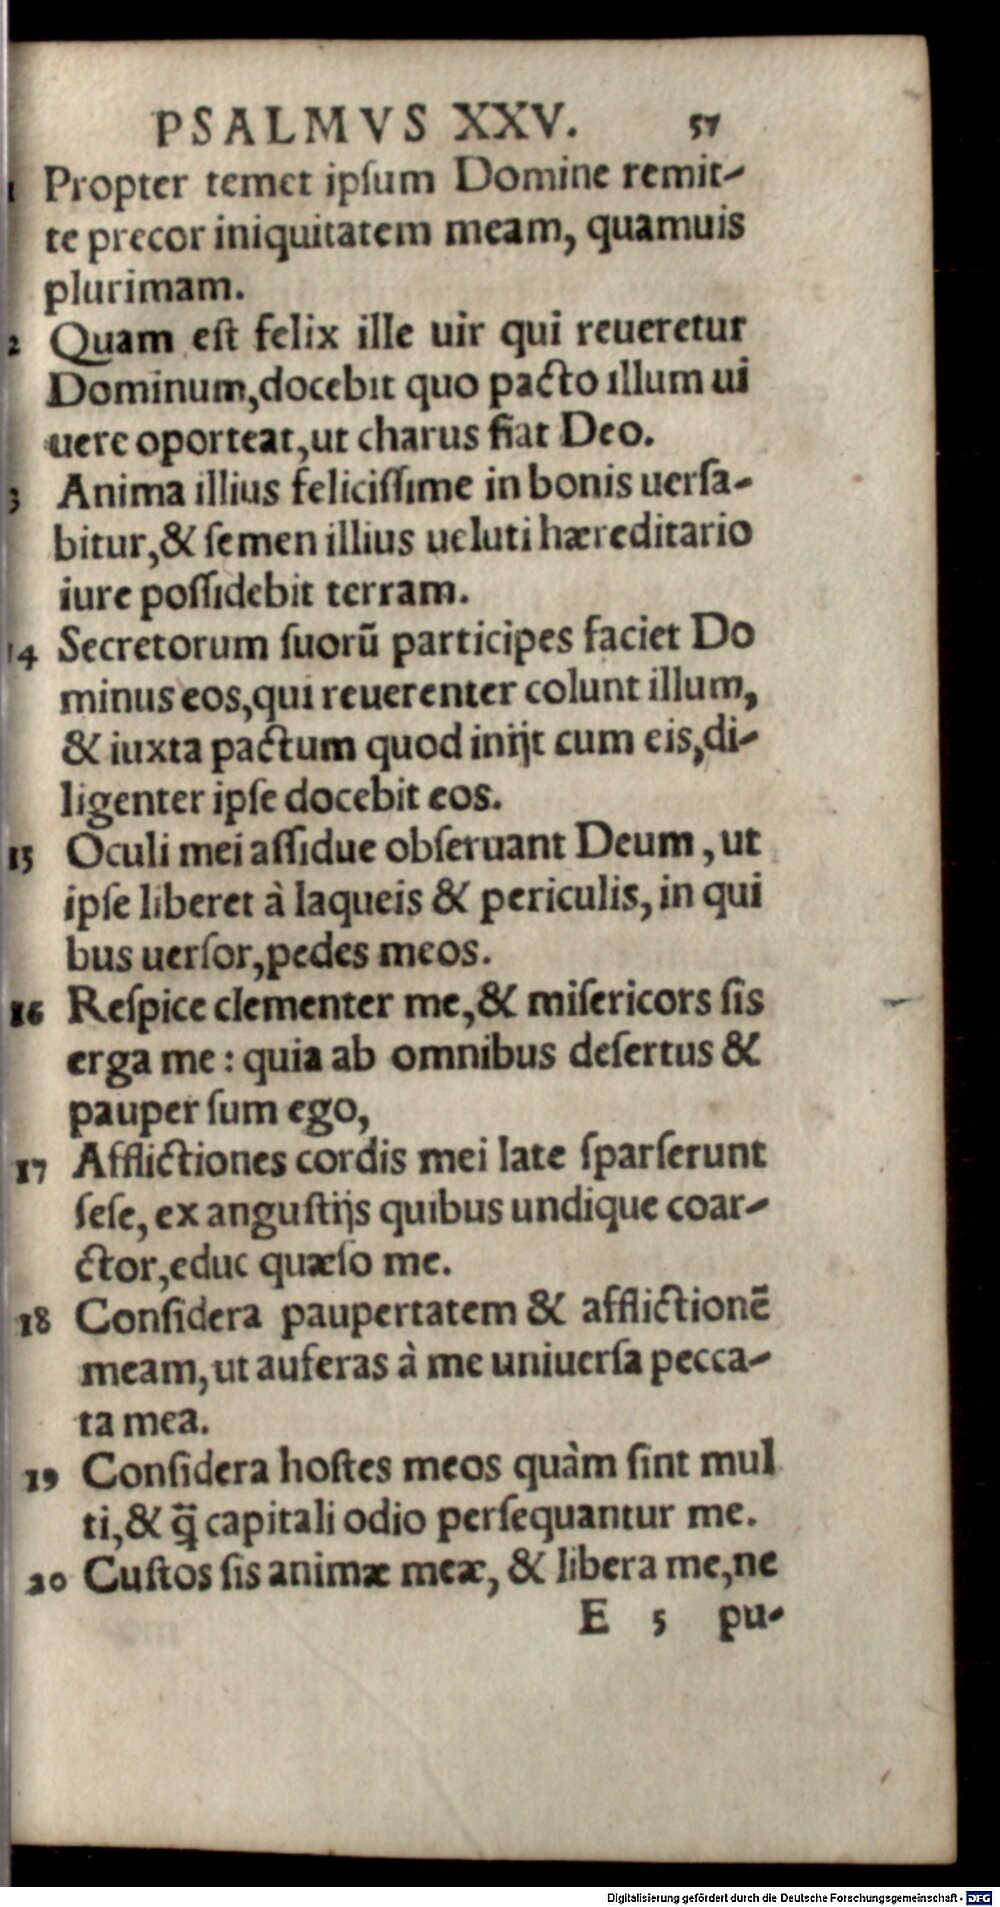 PSALMVS XXV. 57
1 Propter temet ipſum Domine remit-
te precor iniquitatem meam, quamuis
plurimam.
2 Quam eſt felix ille uir qui reueretur
Dominum,docebit quo pacto illum ui
uere oporteat,ut charus fiat Deo.
3 Anima illius feliciſſime in bonis uerſa-
bitur,& ſemen illius ueluti hæreditario
iure poſſidebit terram.
14 Secretorum ſuorũ participes faciet Do
minus eos,qui reuerenter colunt illum,
& iuxta pactum quod inijt cum eis,di-
ligenter ipſe docebit eos.
15 Oculi mei aſſidue obſeruant Deum, ut
ipſe liberet à laqueis & periculis, in qui
bus uerſor,pedes meos.
16 Reſpice clementer me,& miſericors ſis
erga me: quia ab omnibus deſertus &
pauper ſum ego,
17 Afflictiones cordis mei late ſparſerunt
ſeſe, ex anguſtijs quibus undique coar-
ctor,educ quæſo me.
18 Conſidera paupertatem & afflictionẽ
meam,ut auferas à me uniuerſa pecca-
ta mea.
19 Conſidera hoſtes meos quàm ſint mul
ti,& q̃ capitali odio perſequantur me.
20 Cuſtos ſis animæ meæ, & libera me,ne
E 5 pu-
Digitalisierung gefördert durch die Deutsche Forschungsgemeinschaft - DFG